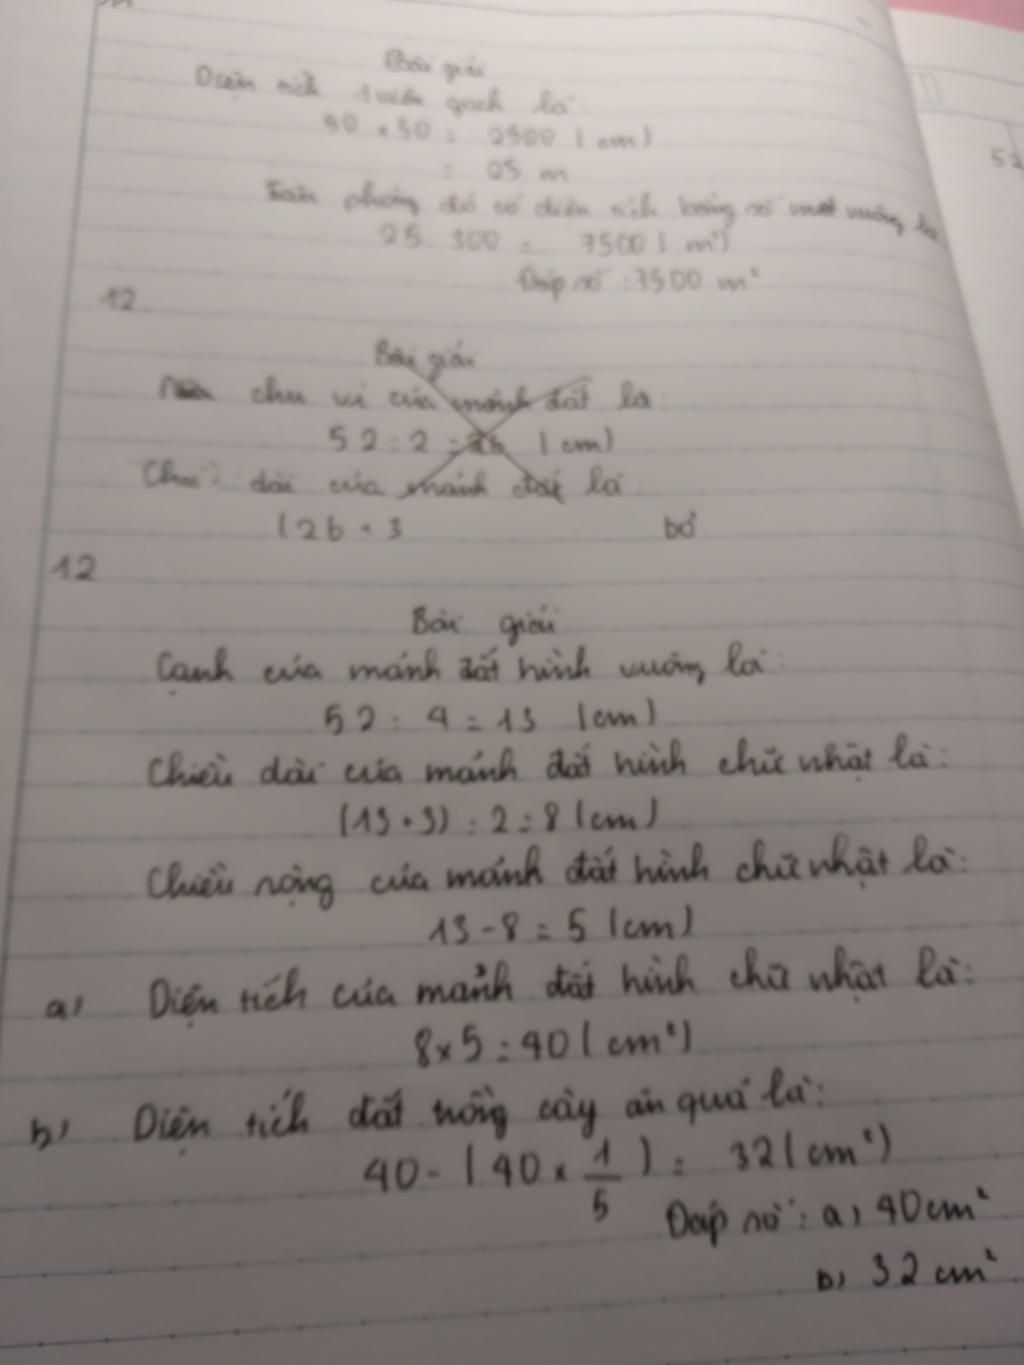 Bài giải
Diện tích 1 viên gạch là:
50 × 50 = 2500 (cm)
= 25 m
phòng đó có diện tích bằng số mét vuông là
25 . 300 = 7500 ( m²)
Đáp số : 7500 m²
52
12
Bài giải
Nửa chu vi của mảnh đất là:
52 : 2 = 26 (cm)
Chiều dài của mảnh đất là
(26 + 3
bỏ
12
Bài giải
Cạnh của mảnh đất hình vuông là:
52 : 4 = 13 (cm)
Chiều dài của mảnh đất hình chữ nhật là:
(13 + 3) : 2 = 8 (cm)
Chiều rộng của mảnh đất hình chữ nhật là:
13 - 8 = 5 (cm)
a) Diện tích của mảnh đất hình chữ nhật là:
8 × 5 = 40 ( cm²)
b) Diện tích đất trồng cây ăn quả là:
40 - ( 40 × 1/5 ) = 32 ( cm²)
Đáp số : a) 40 cm²
b) 32 cm²